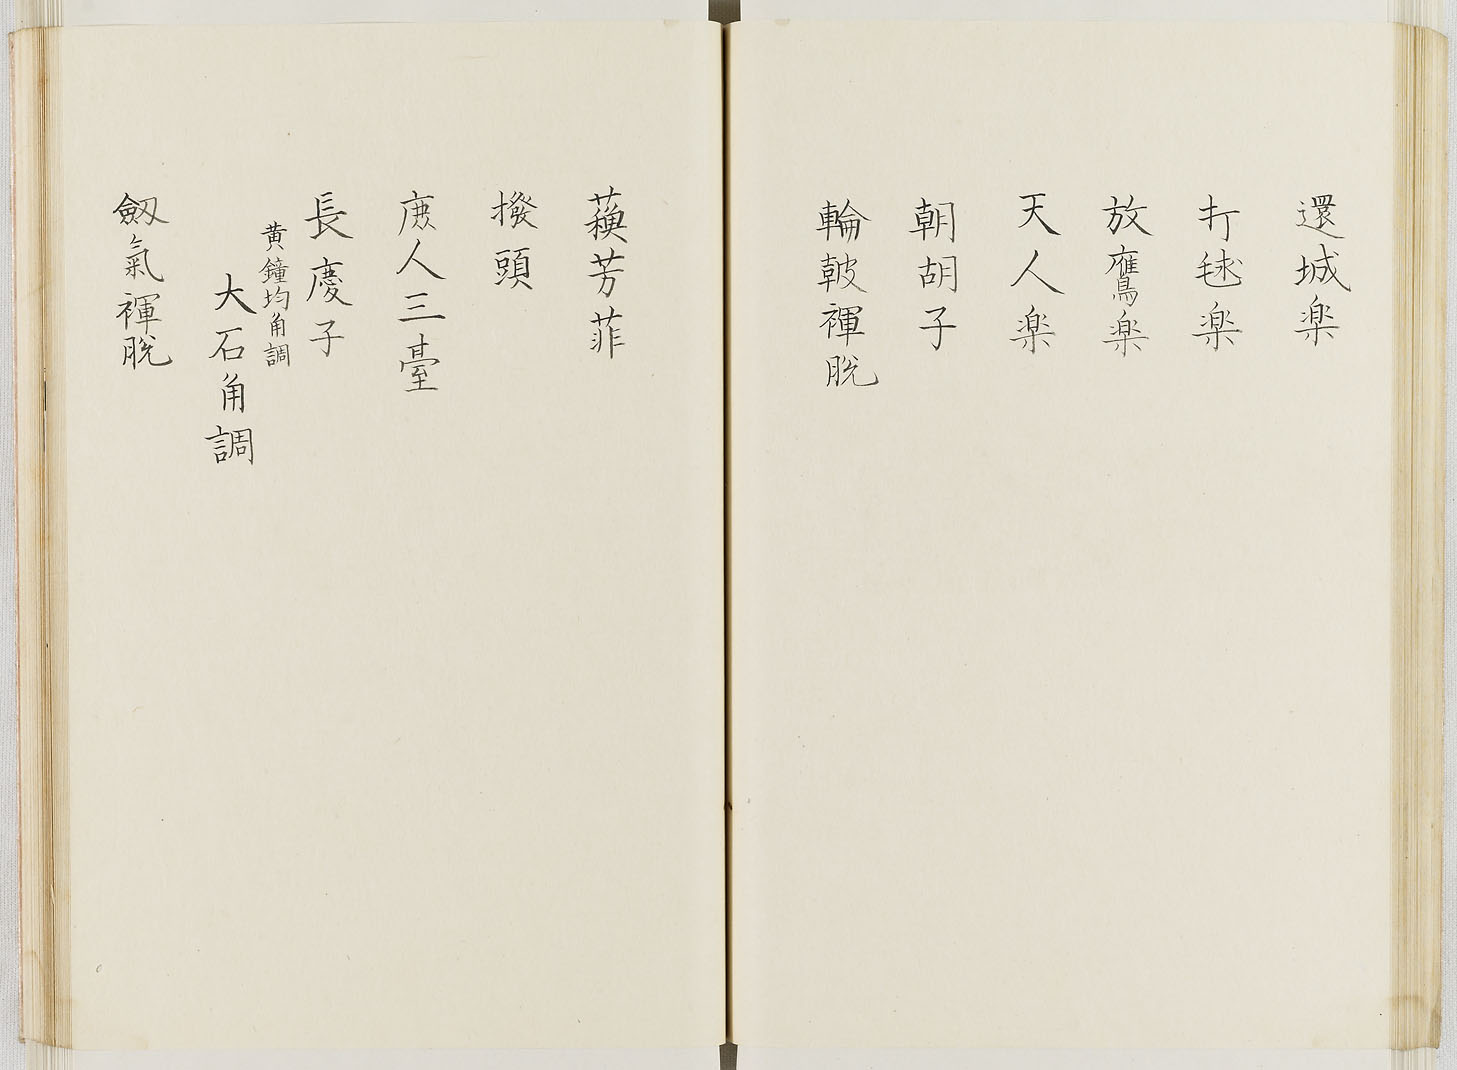 還城楽
打毬楽
放鷹楽
天人楽
朝胡子
輪鼓褌脱
蘓芳菲
撥頭
庶人三臺
長慶子
黄鐘均角調
大石角調
劔氣褌脱